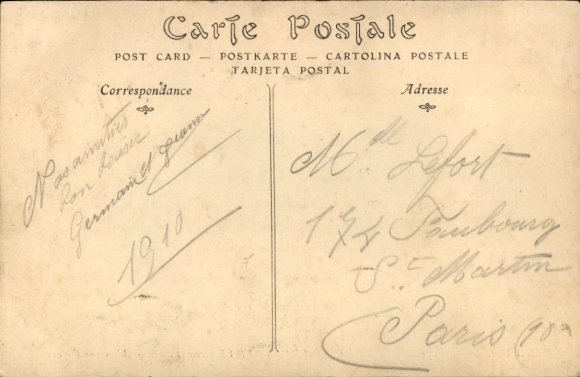 Carte Postale
POST CARD — POSTKARTE — CARTOLINA POSTALE
TARJETA POSTAL
Correspondance
Nos amitiés
Bon baiser
Germain et
1910
Adresse
M.elle Lefort
174 Faubourg
St. Martin
Paris (10e